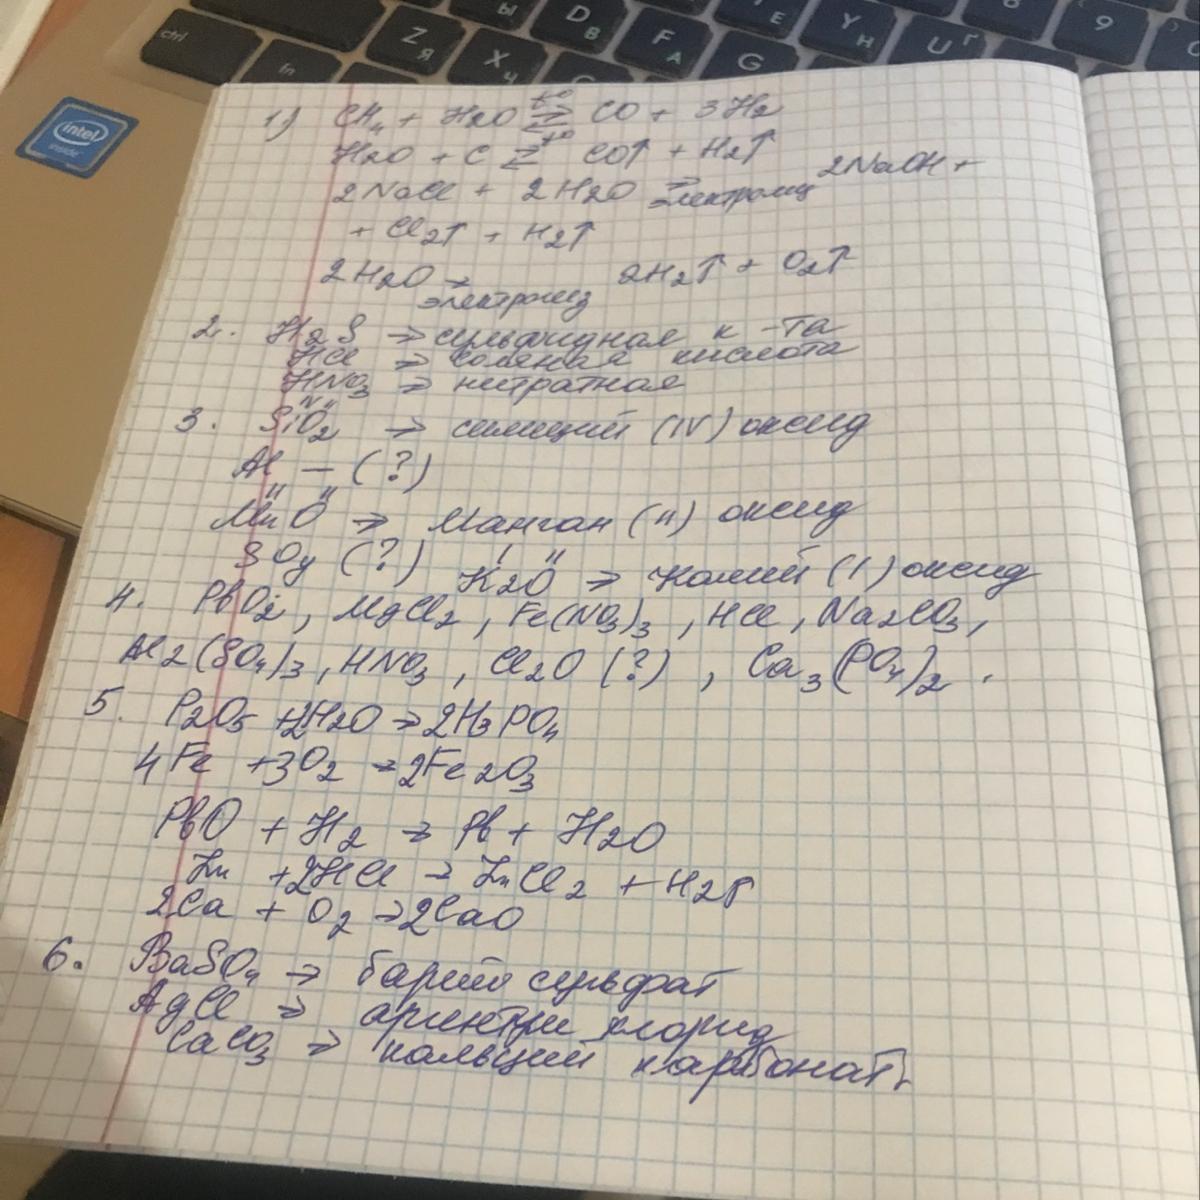 ctrl
fn
Z Я
X Ч
Ы
D В
F А
G
Е
Y Н
U Г
8
9
intel
inside
1) CH4 + H2O t° ⇄ t° CO + 3H2
H2O + C ⇄ t° CO↑ + H2↑
2NaCl + 2H2O → электролиз 2NaOH +
+ Cl2↑ + H2↑
2H2O → электролиз 2H2↑ + O2↑
2. H2S → сульфидная к-та
HCl → соляная кислота
HNO3 → нитратная
3. SiO2 → силиций (IV) оксид
Al — (?)
MnO → Манган (II) оксид
SOy (?) K2O → Калий (I) оксид
4. PbO2, MgCl2, Fe(NO3)3, HCl, Na2CO3,
Al2(SO4)3, HNO3, Cl2O (?), Ca3(PO4)2.
5. P2O5 + H2O → 2H3PO4
4Fe + 3O2 → 2Fe2O3
PbO + H2 → Pb + H2O
Zn + 2HCl → ZnCl2 + H2↑
2Ca + O2 → 2CaO
6. BaSO4 → барий сульфат
AgCl → хлорид
CaCO3 → кальций карбонат